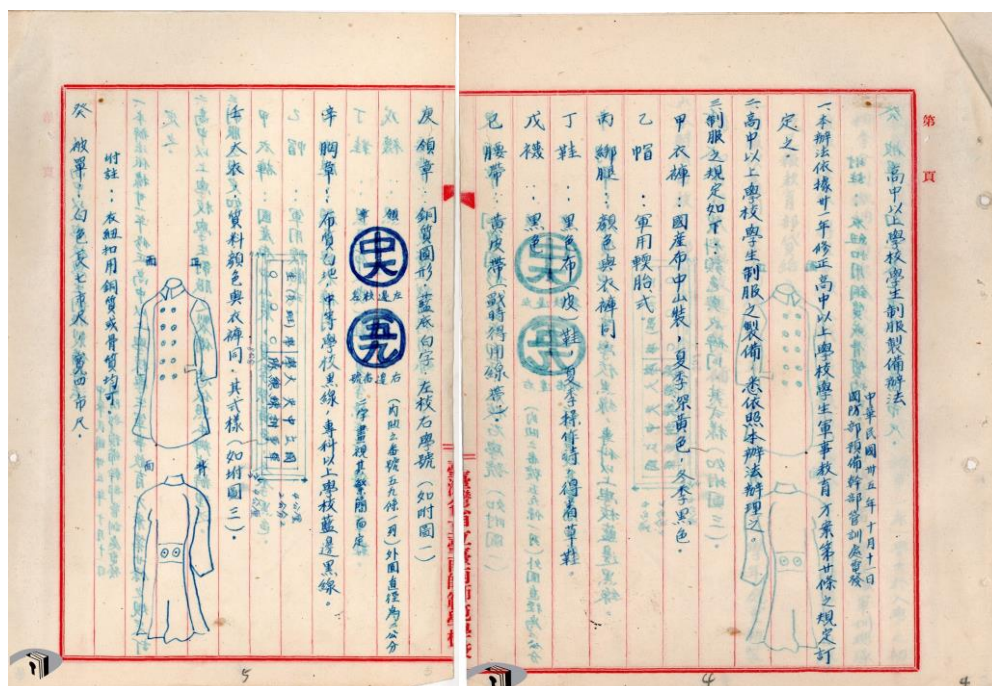 第　頁
高中以上學校學生制服製備辦法
中華民國卅五年十月十一日
國防部預備幹部管訓處電發
一本辦法依據卅一年修正高中以上學校學生軍事教育方案第廿條之規定訂
定之
二高中以上學校學生制服之製備悉依照本辦法辦理之。
三制服之規定如下：
甲 衣褲：國産布中山裝，夏季深黃色。冬季黑色。
乙 帽：軍用輭胎式
丙 綁腿：顏色與衣褲同
丁 鞋：黑色布(皮)鞋 夏季操作時，得着草鞋。
戊 襪：黑色
己 腰帶：黃皮帶(戰時得用線帶)。
4
庚 領章：銅質圓形，藍底白字，左校右學號(如附圖一)
中大
左邊校名
五九
右邊番號
(內間之番號五九係一月)外圍直徑為二公分
字畫視其繁簡而定
辛 胸章：布質白地，中等學校黑線，專科以上學校藍邊黑線。
壬 大衣：質料顏色與衣褲同，其式樣(如附圖三)。
正面
背面
附註：衣紐扣用銅質或骨質均可。
癸 被單：白色長七市尺，寬四市尺。
臺灣省立臺南師範學校
5